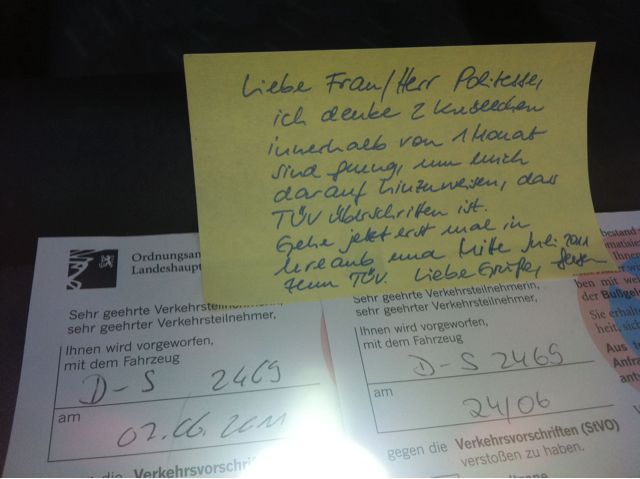 Liebe Frau/Herr Politesse,
ich denke 2 Knöllchen
innerhalb von 1 Monat
sind genug, um mich
darauf hinzuweisen, das
TÜV überschritten ist.
Gehe jetzt erst mal in
Urlaub und Mitte Juli 2011
zum TÜV. Liebe Grüße,
Ordnungsam
Landeshaupt
Sehr geehrte Verkehrsteilnehmerin,
sehr geehrter Verkehrsteilnehmer,
Ihnen wird vorgeworfen,
mit dem Fahrzeug
D-S 2469
am
07.06.2011
die Verkehrsvorschrif
Sehr geehrte Verkehrsteilnehmerin,
sehr geehrter Verkehrsteilnehmer,
Ihnen wird vorgeworfen,
mit dem Fahrzeug
D-S 2469
am
24/06
gegen die Verkehrsvorschriften (StVO)
verstoßen zu haben.
bestand
Ihne
ben mit we
der Bußgel
Sie erhalte
heit, sich
Aus t
Anfra
antw